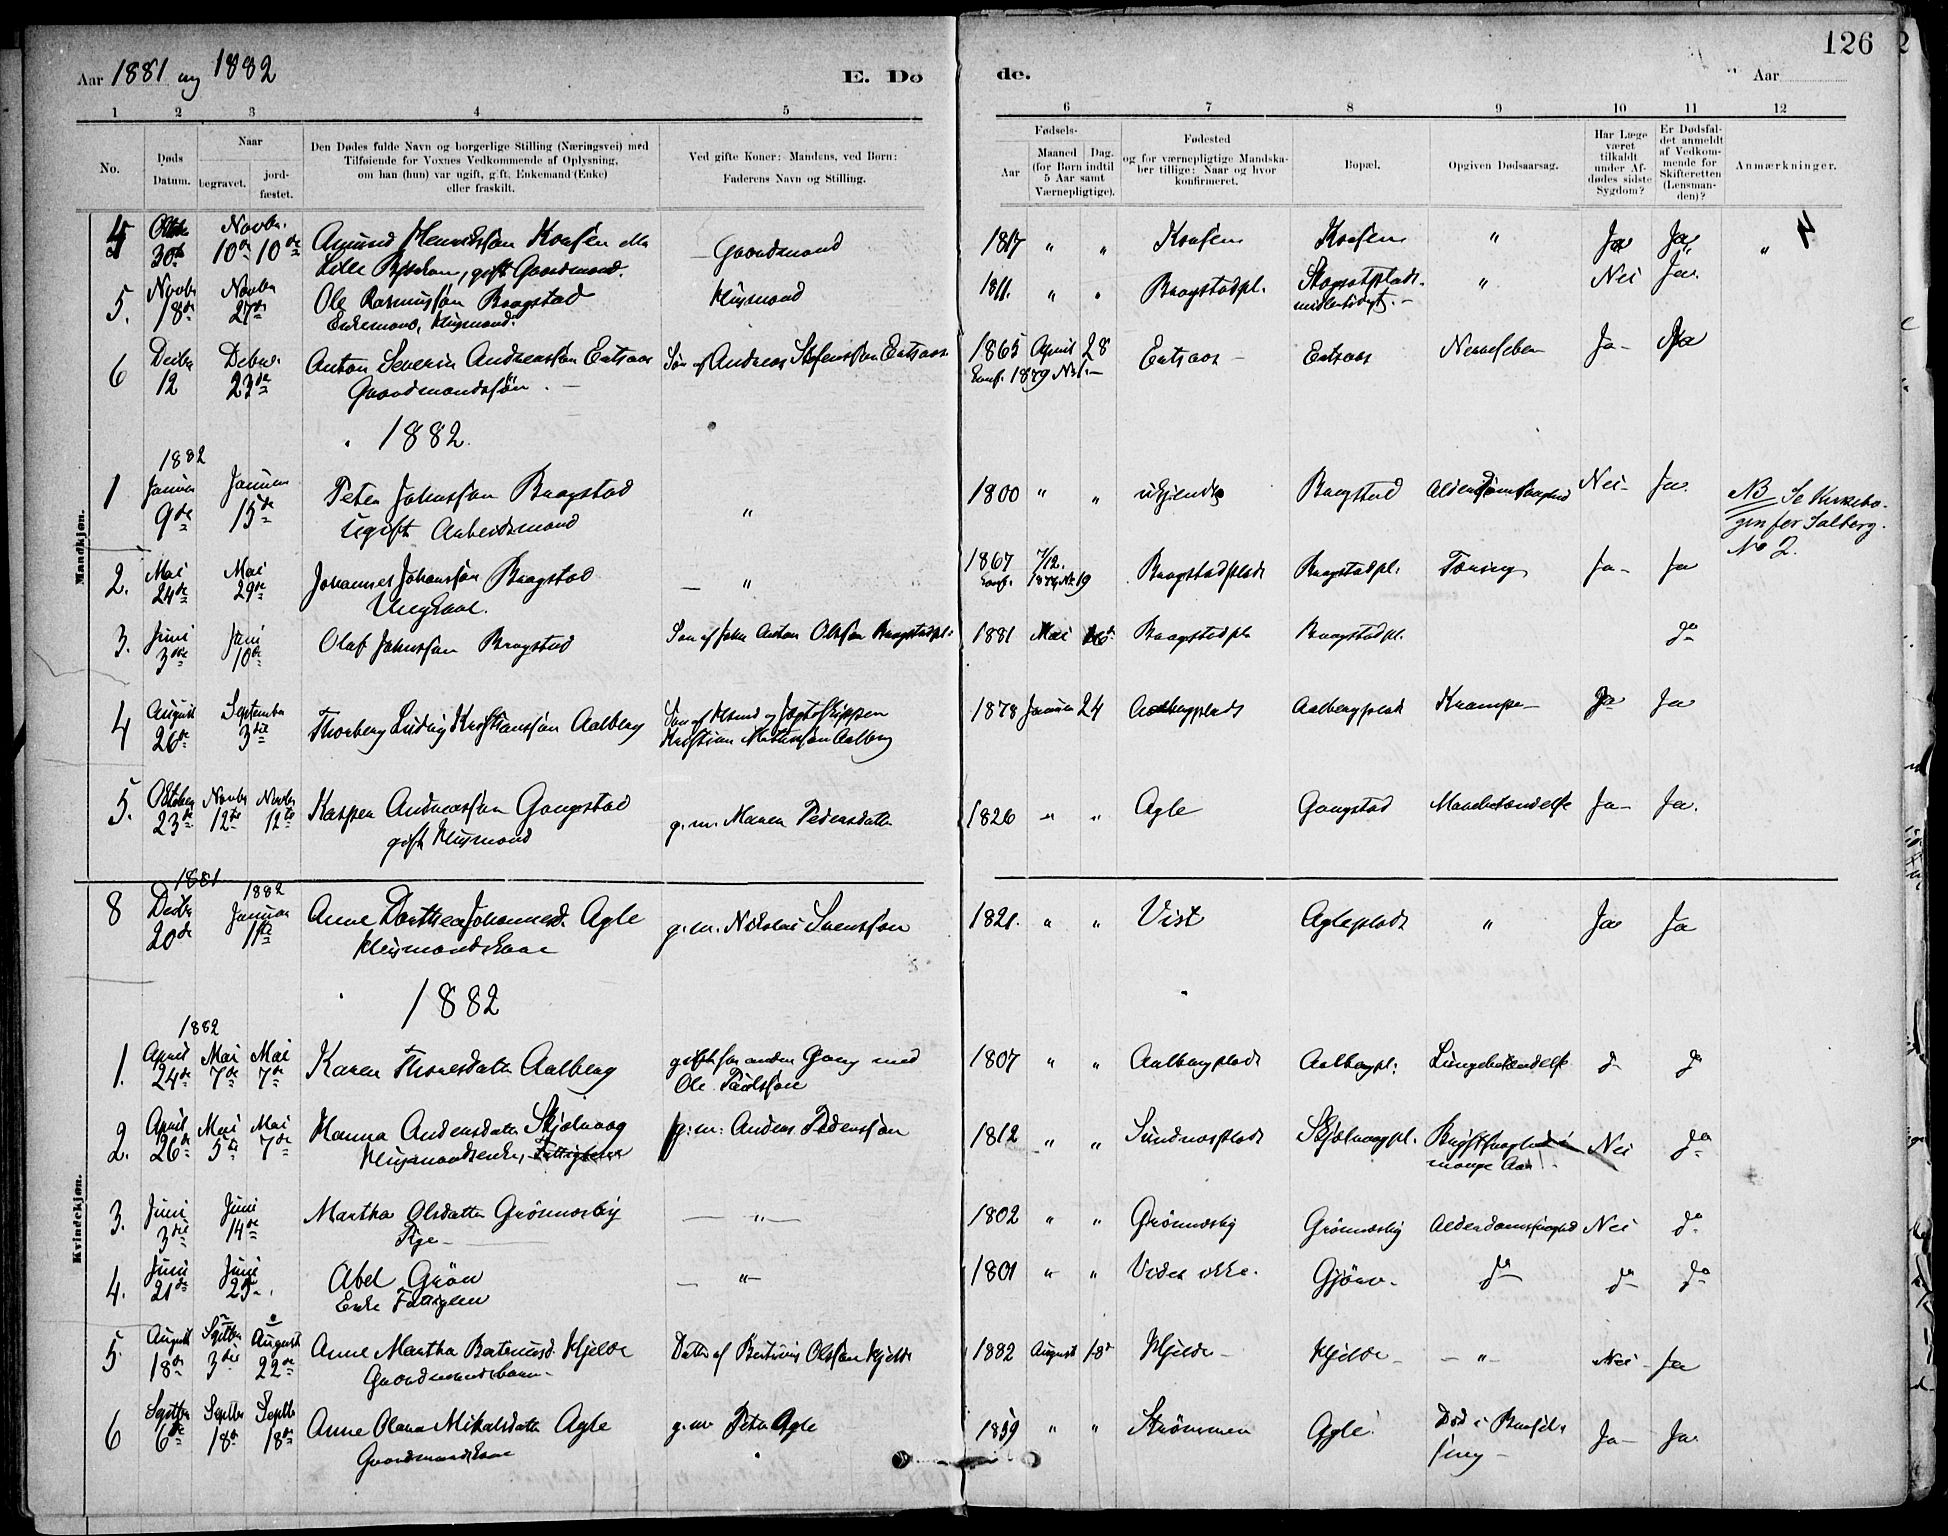 126
Aar 1881 og 1882
E. Dø
de.
Aar
1 2 3 4 5 6 7 8 9 10 11 12
No.
Døds Datum.
Naar
begravet.
jord-
fæstet.
Den Dødes fulde Navn og borgerlige Stilling (Næringsvei) med
Tilføiende for Voxnes Vedkommende af Oplysning,
om han (hun) var ugift, gift, Enkemand (Enke)
eller fraskilt.
Ved gifte Koner: Mandens, ved Børn:
Faderens Navn og Stilling.
Fødsels-
Aar
Maaned Dag.
(for Børn indtil
5 Aar samt
Værnepligtige).
Fødested
og for værnepligtige Mandska-
ber tillige: Naar og hvor
konfirmeret.
Bopæl.
Opgiven Dødsaarsag.
Har Læge
været
tilkaldt
under Af-
dødes sidste
Sygdom?
Er Dødsfal-
det anmeldt
af Vedkom-
mende for
Skifteretten
(Lensman-
den)?
Anmærkninger.
Mandkjøn.
30te 10de 10de Gaardmand 1817 " " " Ja Ja "
gift Gaardmand.
5. Novbr 18de Novbr 27de Ole Rasmussøn Bragstad Husmand 1811. " " Bragstadpl. " Nei Ja
Enkemand, Husmand.
6 Decbr 12 Decbr 23de Anton Severin Andreassøn Søn af Andreas 1865 April 28 Ja Ja
Gaardmandssøn. Konf. 1879
1882.
1882
1 Januar 9de Januar 15de Peter Johnssøn Bragstad " 1800 " " Bragstad Nei Ja
Ugift Arbeidsmand
NB Se Kirkebo-
gen for Salberg.
No 2.
2. Mai 24de Mai 29de Johannes Johanssøn Bragstad " 1867 7/12. Bragstadplads Bragstadpl. Tæring Ja Ja
Ungkarl.
3. Juni 3die Juni 10de Olaf Johnssøn Bragstad Søn af John Anton Olssøn Bragstadpl. 1881 Mai Bragstadpl Bragstadpl. Ja
4 August 26de September 3die Thorberg Ludvig Kristianssøn Aalberg Søn af Husmd og Jagteskipper 1878 Januar 24 Aalbergplads Aalbergplads Krampe Ja Ja
Kristian Aalberg
5. Oktober 23de Novbr 12te Novbr 12te Kasper Andreassøn Gangstad g. m. Maren Pedersdatter 1826 " " Agle Gangstad Mavebetændelse Ja Ja
gift Husmand
1881 1882
8 Decbr 20de Januar 11te Anne Dorthea Johannesd. Agle g. m. Nikolai Svenssøn 1821. " " Vist Agleplads " Ja Ja
Husmandskone
1882
Kvindekjøn.
1882
1. April 24de Mai 7de Mai 7de Karen Thoresdatter Aalberg gift for anden Gang med 1807 " " Aalbergplads Aalbergpl. Lungebetændelse do do
Ole Paulssøn
2. April 26de Mai 5te Mai 7de Hanna Andersdatter Skjelvaag g. m. Anders Pederssøn 1812 " " Sundnesplads Skjelvaagpl. Nei do
Husmandsenke, mange Aar
3. Juni 3die Juni 14de Martha Olsdatter Grønnesby " 1802 " " Grønnesby Grønnesby Alderdomssvaghed Nei do
Pige
4. Juni 21de Juni Abel Grøn " 1801 " " Vides ikke. do do do
Enke Fattiglem
5. August 18de Septbr 3die August 22de Anne Martha Bertinusd. Hjelde Datter af Bertinus Olssøn Hjelde 1882 August 18de Hjelde Hjelde " Nei Ja
Gaardmandsbarn
6 Septbr 6te Septbr 18de Septbr 18de Anne Olana Mikalsdatter Agle g. m. Peter Agle 1859 " " Strømmen Agle Død i Barsel- Ja Ja
Gaardmandskone seng